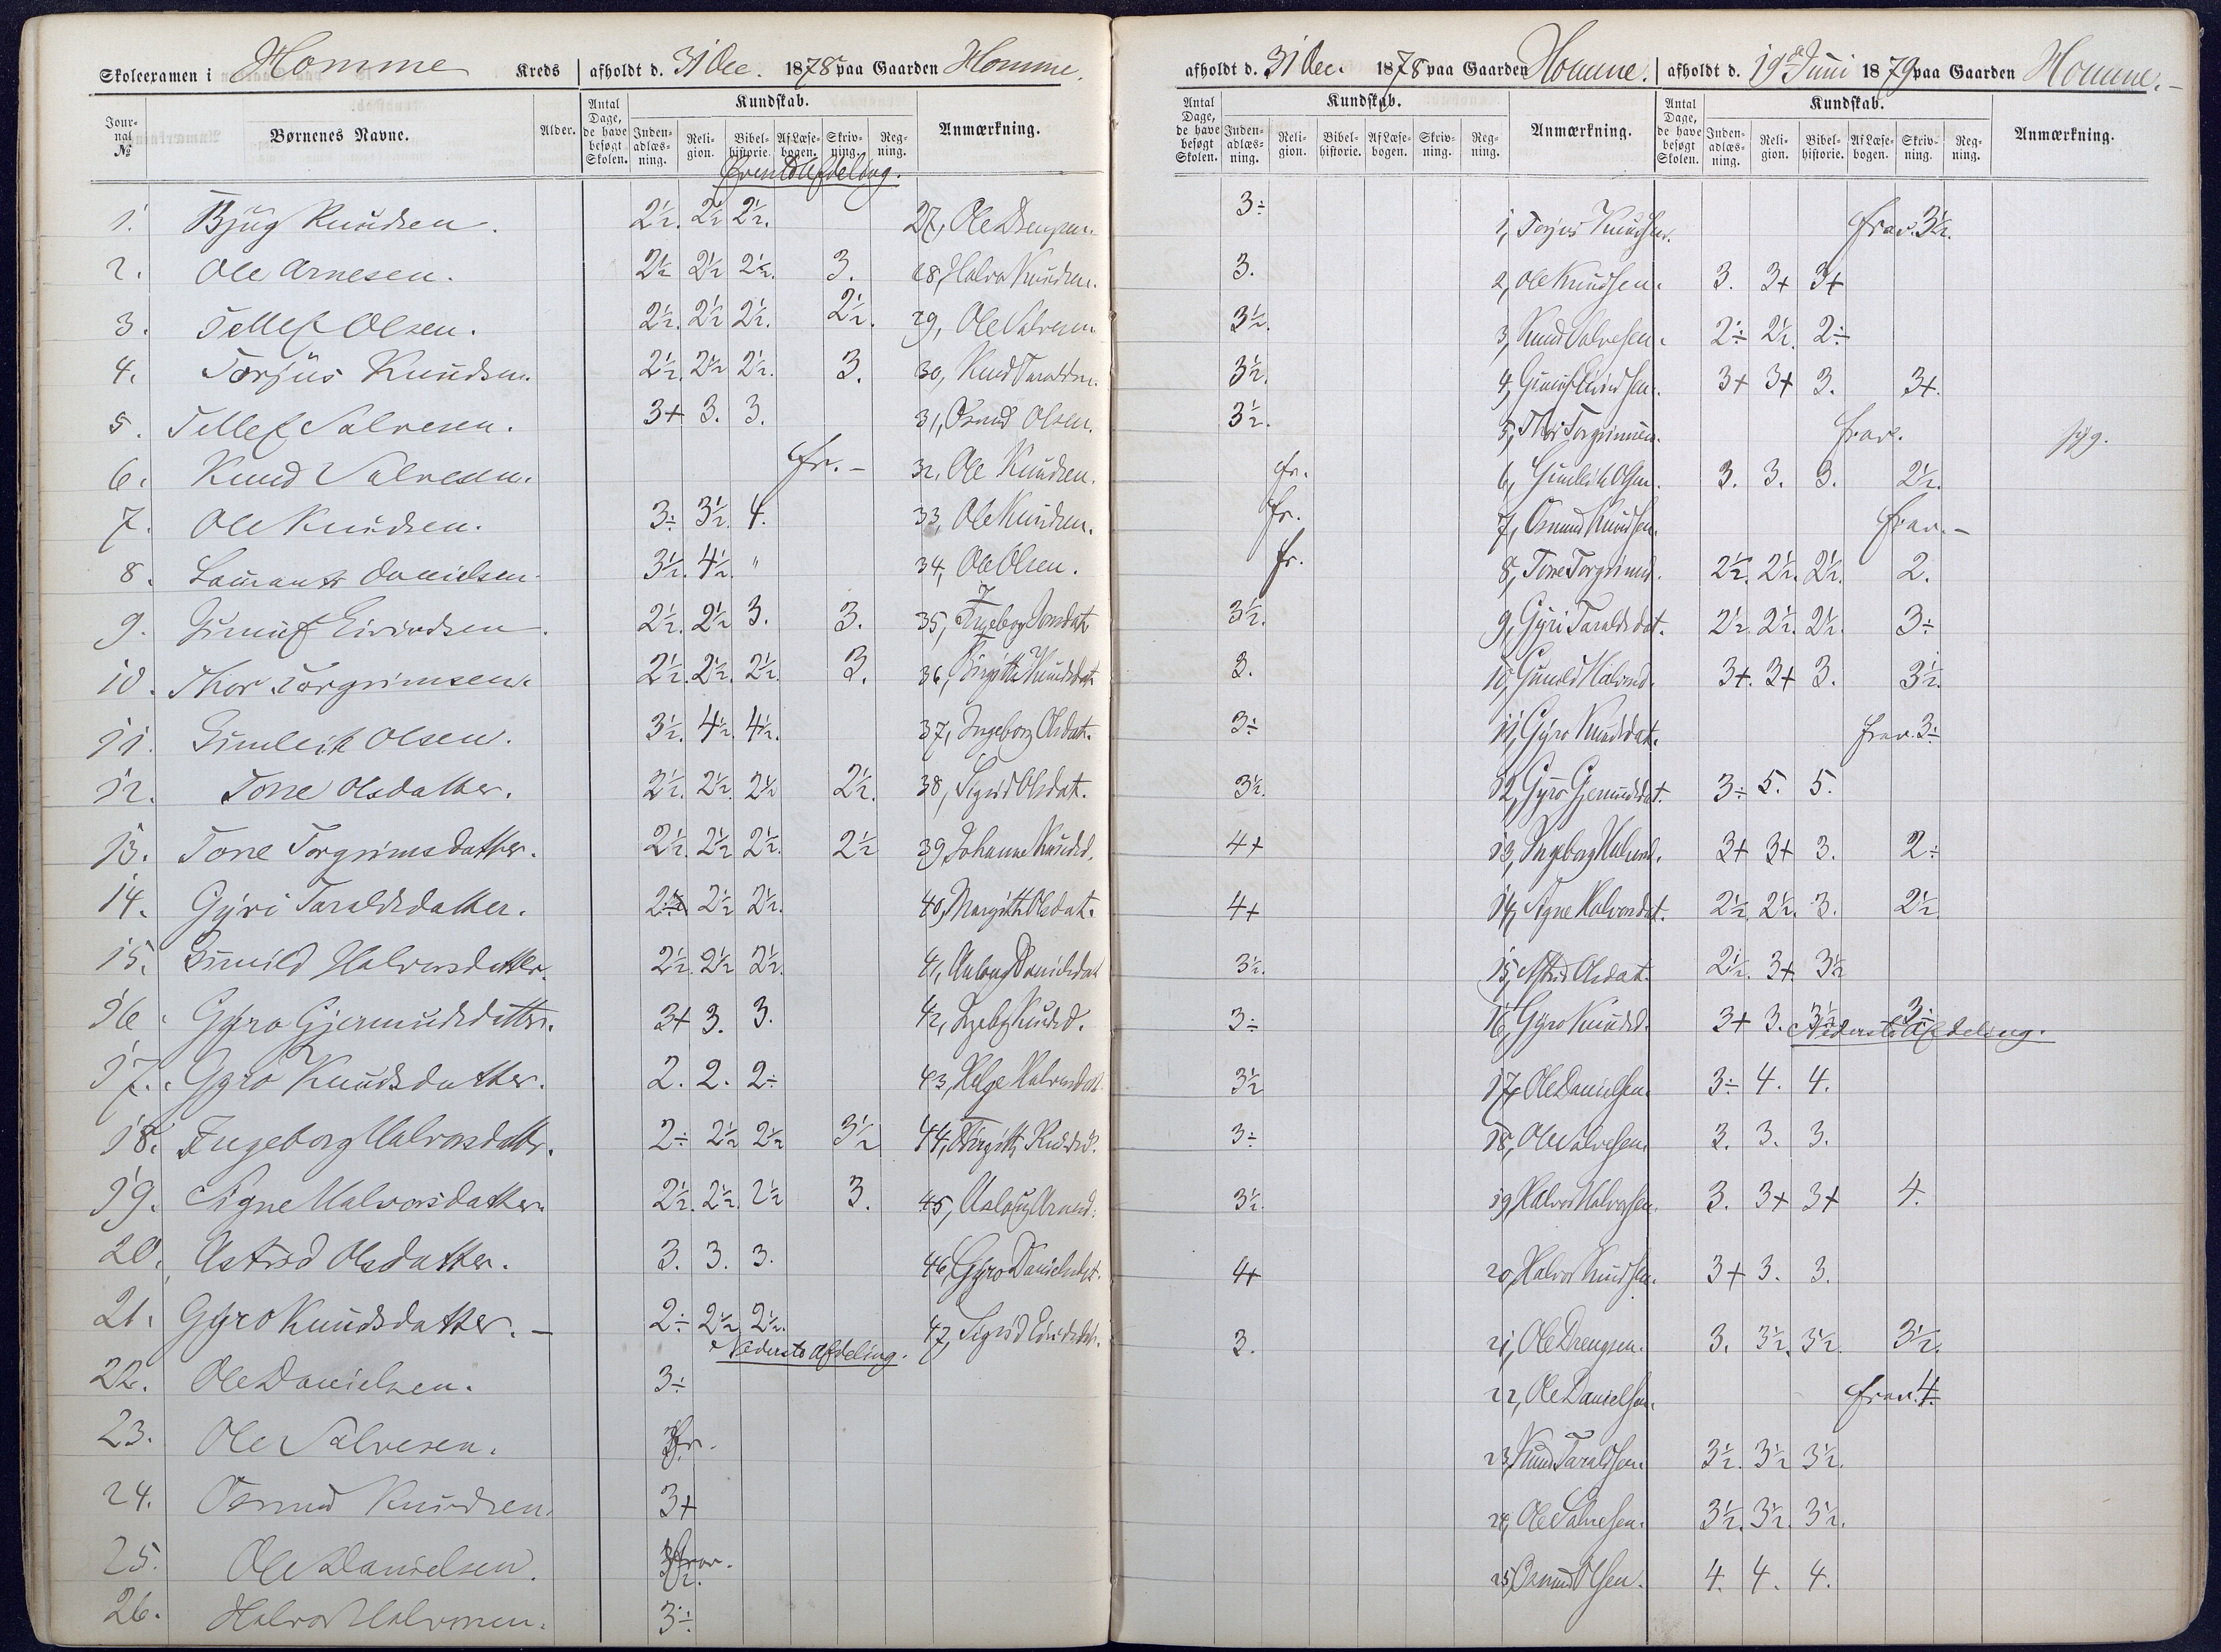 Skoleexamen i Homme Kreds afholdt d. 31 Dec. 1878 paa Gaarden Homme.
Journal № Børnenes Navne. Alder. Antal Dage, de have besøgt Skolen. Kundskab. Indenadlæsning. Religion. Bibelhistorie. Af Læsebogen. Skrivning. Regning. Anmærkning.
Øverste Afdeling.
1. Bjug Knudsen. 2½. 2½ 2½. 27, Ole Drengsen.
2. Ole Arnesen. 2½ 2½ 2½. 3. 28, Halvor Knudsen.
3. Tellef Olsen. 2½. 2½ 2½. 2½. 29, Ole Salvesen
4. Torjus Knudsen. 2½. 2½ 2½. 3. 30, Knud Taraldsen.
5. Tellef Salvesen. 3+ 3. 3. 31, Osmud Olsen.
6. Knud Salvesen. fr. - 32, Ole Knudsen.
7. Ole Knudsen. 3÷ 3½. 4. 33, Ole Knudsen.
8. Danielsen. 3½. 4½. " 34, Ole Olsen.
9. Gunuf Eivindsen. 2½. 2½ 3. 3. 35, Ingeborg
10. Thor Torgrimsen. 2½. 2½. 2½. 3. 36, Birgitte Knudsdat.
11. Gunleik Olsen. 3½. 4½. 4½. 37, Ingeborg Olsdat.
12. Tone Olsdatter. 2½. 2½. 2½ 2½. 38, Sigrid Olsdat.
13. Tone Torgrimsdatter. 2½. 2½ 2½. 2½ 39, Johanne Knudsd.
14. Gyri Taraldsdatter. 2½ 2½ 2½. 40, Margith Olsdat.
15. Gunild Halvorsdatter. 2½. 2½ 2½. 41, Aslaug Danielsdat
16. Gyro Gjermundsdatter. 3+ 3. 3. 42, Ingeb. Knudsd.
17. Gyro Knudsdatter. 2. 2. 2÷ 43, Helge Halvorsdat.
18. Ingeborg Halvorsdatter. 2÷ 2½ 2½ 3½ 44, Birgitte Knudsd.
19. Signe Halvorsdatter 2½. 2½. 2½ 3. 45, Aslaug Arnesd.
20. Astrid Olsdatter. 3. 3. 3. 46, Gyro Danielsdat.
21. Gyro Knudsdatter. - 2÷ 2½ 2½. 47, Sigrid Eivindsdat.
Nederste Afdeling.
22. Ole Danielsen. 3÷
23. Ole Salvesen. fr.
24. Osmud Knudsen. 3+
25. Ole Danielsen. frav.
26. Halvor Halvorsen. 3÷
afholdt d. 31 Dec. 1878 paa Gaarden Homme. afholdt d. 19de Juni 1879 paa Gaarden Homme. -
Antal Dage, de have besøgt Skolen. Kundskab. Indenadlæsning. Religion. Bibelhistorie. Af Læsebogen. Skrivning. Regning. Anmærkning. Antal Dage, de have besøgt Skolen. Kundskab. Indenadlæsning. Religion. Bibelhistorie. Af Læsebogen. Skrivning. Regning. Anmærkning.
3÷ 1, Torjus Knudsen. frav. 3½.
3. 2, Ole Knudsen. 3. 3+ 3+
3½. 3, Knud Salvesen. 2÷ 2½. 2÷
3½. 4, Gunuf Eivindsen. 3+ 3+ 3. 3+.
3½. 5, Thor Torgrimsen. frav. syg.
fr. 6, Gunleik Olsen. 3. 3. 3. 2½.
fr. 7, Osmund Knudsen. frav. -
fr. 8, Tone Torgrimsd. 2½. 2½. 2½. 2.
3½. 9, Gyri Taraldsdat. 2½. 2½. 2½. 3÷
3. 10, Gunild Halvorsd. 3+. 3+ 3. 3½.
3÷ 11, Gyro Knudsdat. frav. 3÷
3½. 12, Gyro Gjermundsdat. 3÷ 5. 5.
4+ 13, Ingeborg Halvorsd. 3+ 3+ 3. 2÷
4+ 14, Signe Halvorsdat. 2½ 2½. 3. 2½.
3½. 15, Astrid Olsdat. 2½. 3+. 3½
3÷ 16, Gyro Knudsd. 3+ 3. 3½ 3.
Nederste Afdeling.
3½ 17, Ole Danielsen. 3÷ 4. 4.
3÷ 18, Ole Salvesen. 3. 3. 3.
3½. 19, Halvor Halvorsen. 3. 3+ 3+ 4.
4+ 20, Halvor Knudsen. 3+ 3. 3.
3. 21, Ole Drengsen. 3. 3½. 3½. 3½.
22, Ole Danielsen. frav. 4.
23, Knud Taraldsen. 3½. 3½ 3½.
24, Ole Salvesen. 3½. 3½. 3½.
25, Osmund Olsen. 4. 4. 4.